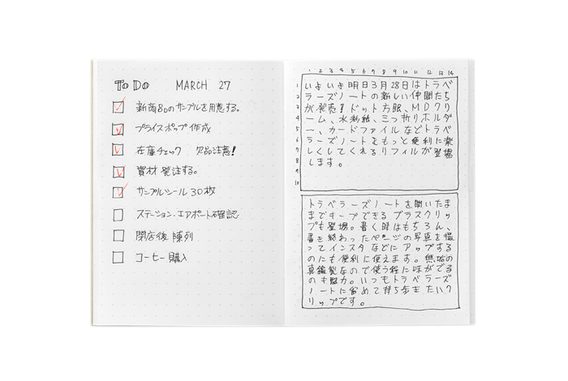 To Do MARCH 27
新商品のサンプルを用意する。
プライスポップ作成
在庫チェック 欠品注意!
資材発注する。
サンプルシール 30枚
ステーション、エアポート確認
閉店後 陳列
コーヒー購入
1 2 3 4 5 6 7 8 9 10 11 12 13 14
1 いよいよ明日3月28日はトラベ
2 ラーズノートの新しい仲間たち
3 が発売!ドット方眼、MDクリ
4 ーム、水彩紙、三つ折りホルダ
5 ー、カードファイルなどトラベ
6 ラーズノートをもっと便利に楽
7 しくしてくれるリフィルが登場
8 します。
9
10
トラベラーズノートを開いたま
まキープできるブラスクリッ
プも登場。書く時はもちろん、
書き終わったページの写真を撮
ってインスタなどにアップする
のにも便利に使えます。無垢の
真鍮製なので使う程に味がでる
のも魅力。いつもトラベラーズ
ノートに留めて持ち歩きたいク
リップです。